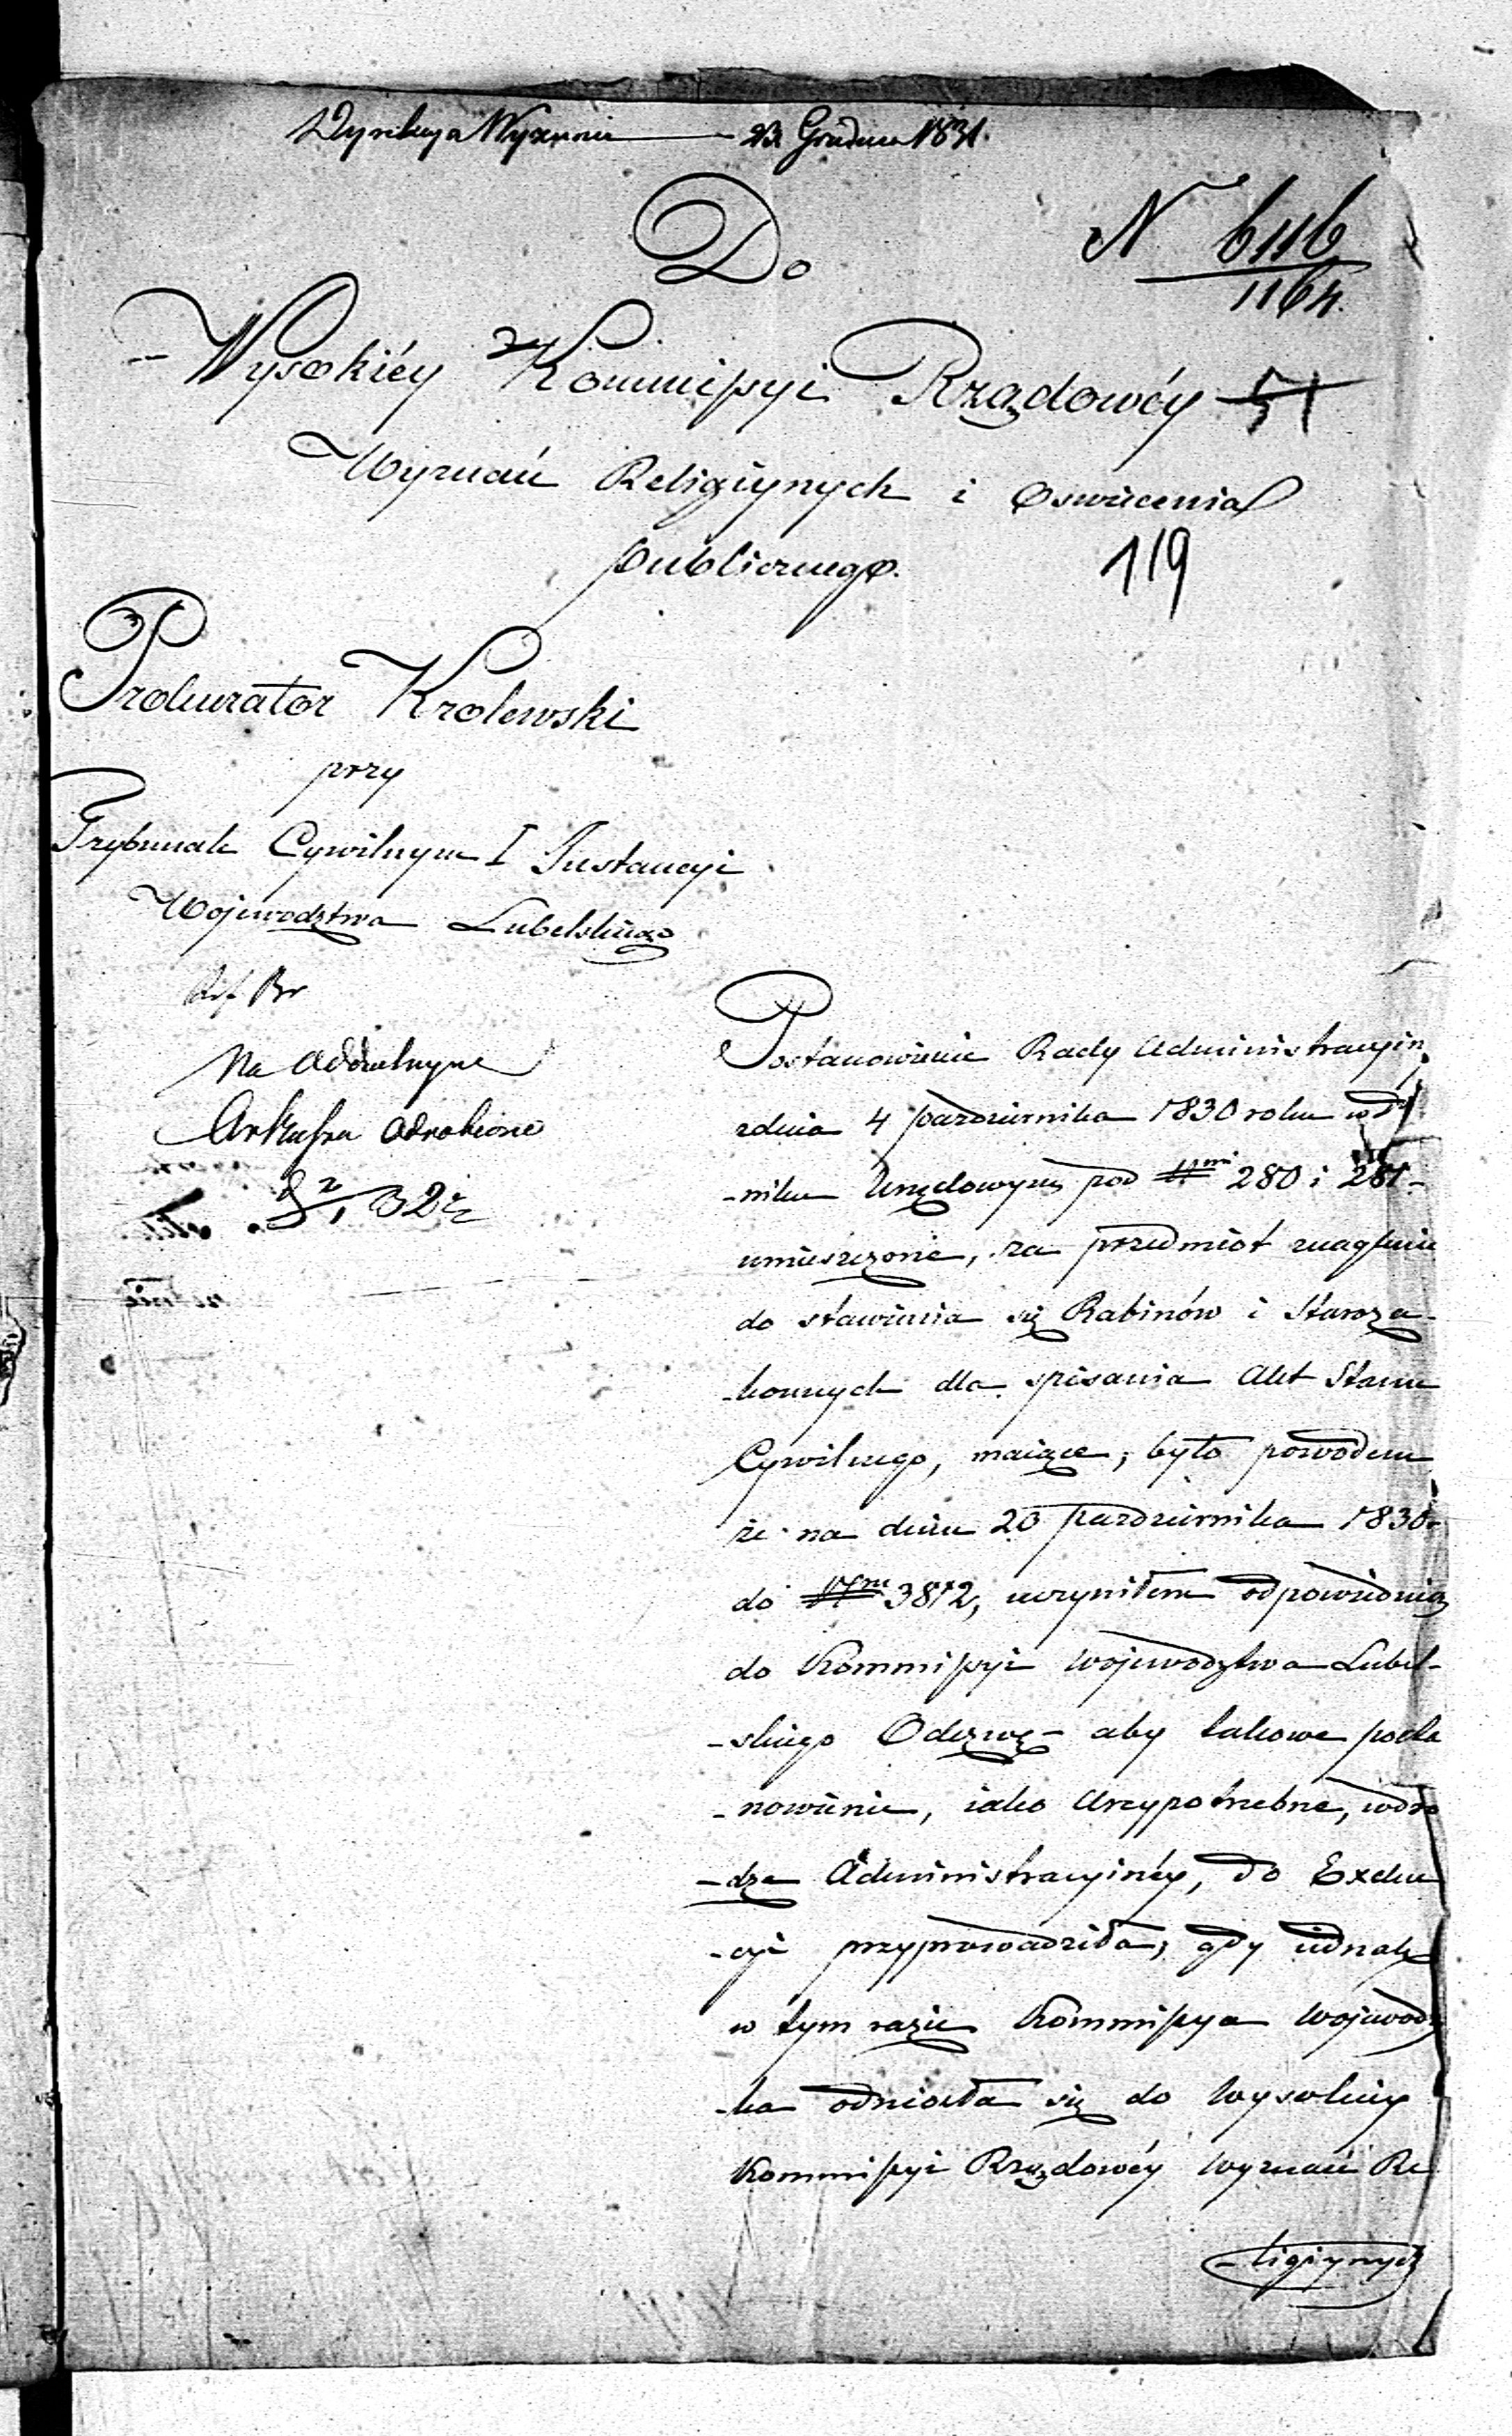 Dyrekcya Wyznań — 23 Grudnia 1831.
Do
N 6116
1164.
Wysokiéy Kommissyi Rządowéy 51
Wyznań Religiynych i Oswiecenia
publicznego.
119
Prokurator Krolewski
przy
Trybunale Cywilnym I Instancyi
Wojewodztwa Lubelskiego
Na oddzielnym
Arkuszu odrobione
Postanowienie Rady Administracyin
zdnia 4 pazdziernika 1830 roku w Dz
-niku Urzędowym pod Nmi 280 i 281-
umieszczone, za przedmiot znaglenie
do stawienia się Rabinów i Staroza-
-konnych dla spisania Akt Stanu
Cywilnego, maiące, było powodem
że na dniu 20 pazdziernika 1830r
do Nru 3872, uczyniłem odpowiednią
do Kommissyi Wojewodztwa Lubel-
-skiego Odezwę - aby takowe posta
-nowienie, iako Arcypotrzebne, wdro
-dze Administracyinéy, do Exeku
-cyi przyprowadziła; gdy iednak
w tym razie Kommissya Wojewodz
-ka odniosła się do Wysokiey
Kommissyi Rządowéy Wyznań Re
-ligiynych